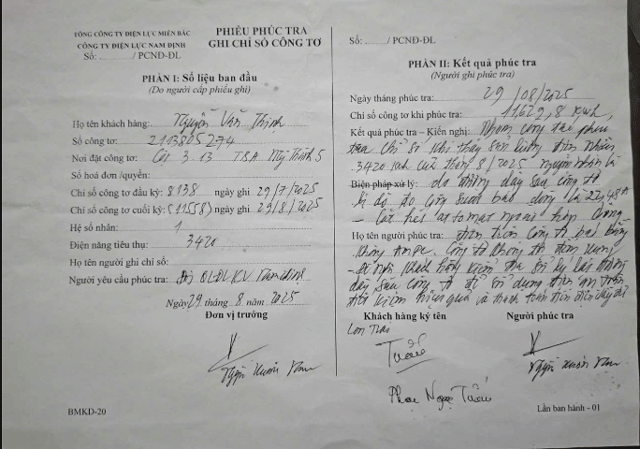 TỔNG CÔNG TY ĐIỆN LỰC MIỀN BẮC
CÔNG TY ĐIỆN LỰC NAM ĐỊNH
Số: ....../ PCNĐ-ĐL
PHIẾU PHÚC TRA
GHI CHỈ SỐ CÔNG TƠ
PHẦN I: Số liệu ban đầu
(Do người cấp phiếu ghi)
Họ tên khách hàng: Nguyễn Văn Thịnh
Số công tơ: 2113805274
Nơi đặt công tơ: Cột 3.13 TBA Mỹ Thịnh 5
Số hoá đơn /quyển:
Chỉ số công tơ đầu kỳ: 8138 ngày ghi 29/7/2025
Chỉ số công tơ cuối kỳ: (11558) ngày ghi 29/8/2025
Hệ số nhân: 1
Điện năng tiêu thụ: 3420
Họ tên người ghi chỉ số:
Người yêu cầu phúc tra: QLĐLKV Nam định
Ngày 29 tháng 8 năm 2025
Đơn vị trưởng
Nguyễn Xuân
BMKD-20
Số: ....../ PCNĐ-ĐL
PHẦN II: Kết quả phúc tra
(Người ghi phúc tra)
Ngày tháng phúc tra: 29/08/2025
Chỉ số công tơ khi phúc tra: 11629,8 kWh
Kết quả phúc tra – Kiến nghị: Nhóm công tác phúc
tra chỉ số khi thấy sản lượng
3420 kWh của tháng 8/2025 nguyên nhân là
Biện pháp xử lý: do đường dây sau công tơ
bị dò công suất báo dòng là 22,48A
- Cắt hết automat ngoài hộp công
Họ tên người phúc tra: công tơ báo
không Ampe công tơ không
- Đề nghị khách hàng kiểm tra xử lý lại đường
dây sau công tơ để sử dụng điện an toàn
tiết kiệm hiệu quả và thanh toán tiền điện
Khách hàng ký tên
Người phúc tra
Con Trai
Tuấn
Phạm Ngọc Tuấn
Nguyễn Xuân
Lần ban hành - 01